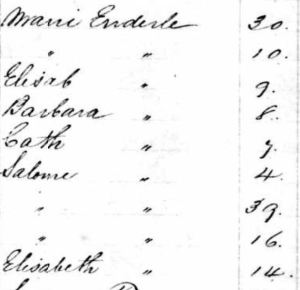 Marri Enderle 30.
" " 10.
Elisab " 9.
Barbara " 8.
Cath " 7.
Salome " 4.
" " 39.
" " 16.
Elisabeth " 14.